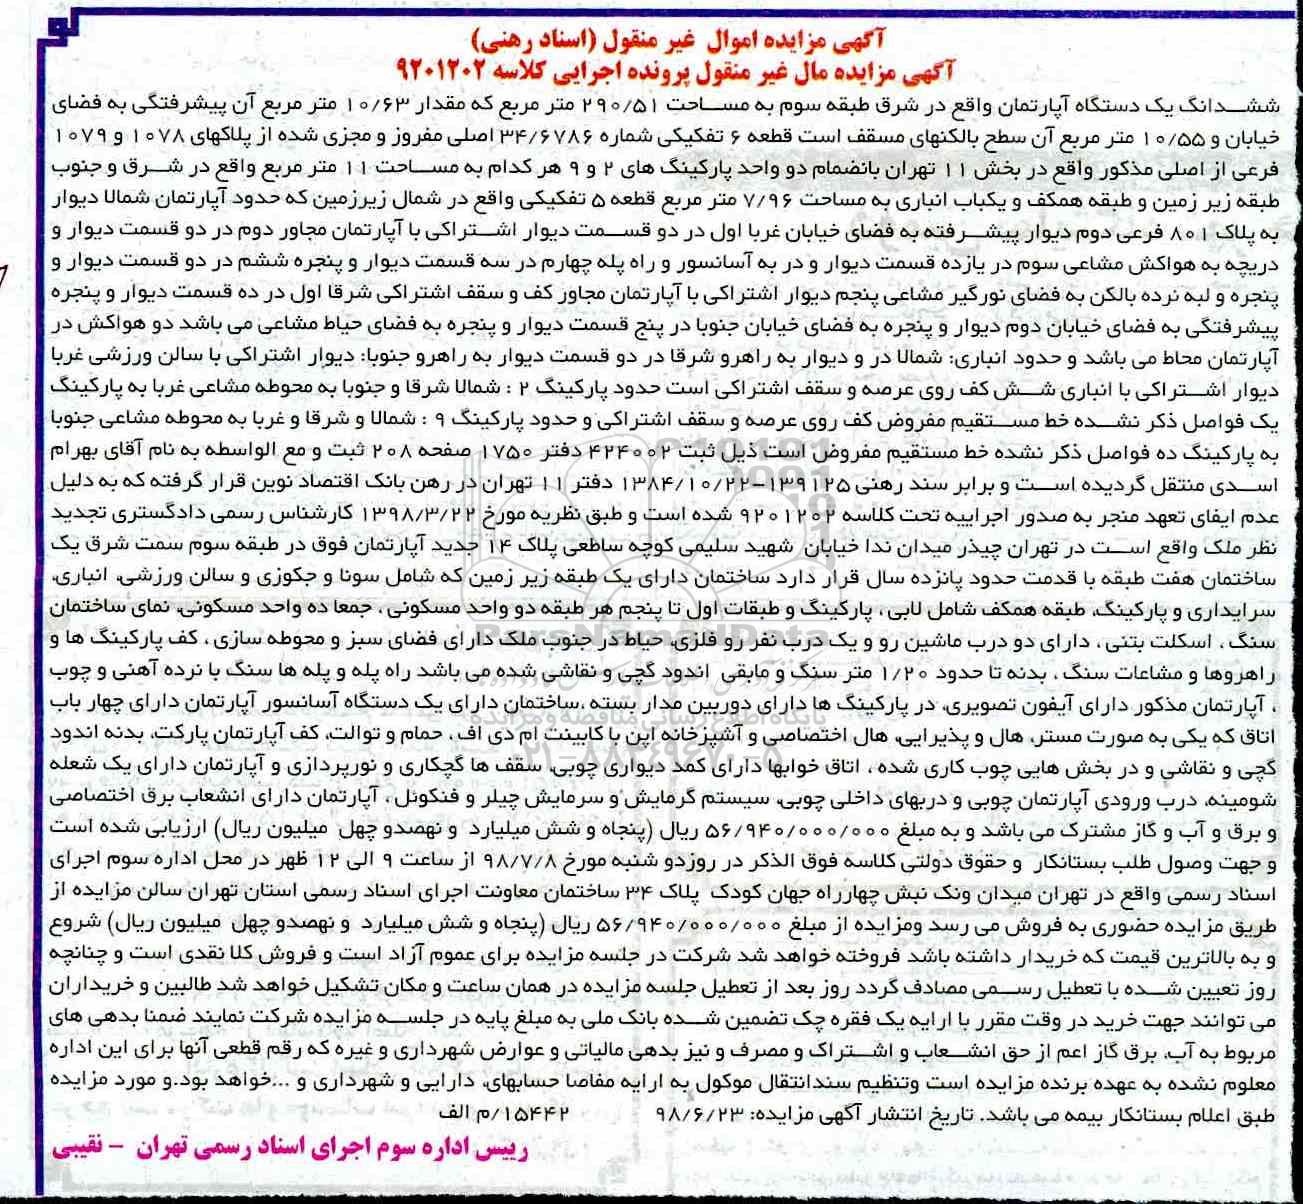 آگهی مزایده اموال غیر منقول (اسناد رهنی)
آگهی مزایده مال غیر منقول پرونده اجرایی کلاسه ۹۲۰۱۲۰۲
ششدانگ یک دستگاه آپارتمان واقع در شرق طبقه سوم به مساحت ۲۹۰/۵۱ متر مربع که مقدار ۱۰/۶۳ متر مربع آن پیشرفتگی به فضای
خیابان و ۱۰/۵۵ متر مربع آن سطح بالکنهای مسقف است قطعه ۶ تفکیکی شماره ۳۴/۶۷۸۶ اصلی مفروز و مجزی شده از پلاکهای ۱۰۷۸ و ۱۰۷۹
فرعی از اصلی مذکور واقع در بخش ۱۱ تهران بانضمام دو واحد پارکینگ های ۲ و ۹ هر کدام به مساحت ۱۱ متر مربع واقع در شرق و جنوب
طبقه زیر زمین و طبقه همکف و یکباب انباری به مساحت ۷/۹۶ متر مربع قطعه ۵ تفکیکی واقع در شمال زیرزمین که حدود آپارتمان شمالا دیوار
به پلاک ۸۰۱ فرعی دوم دیوار پیشرفته به فضای خیابان غربا اول در دو قسمت دیوار اشتراکی با آپارتمان مجاور دوم در دو قسمت دیوار و
دریچه به هواکش مشاعی سوم در یازده قسمت دیوار و در به آسانسور و راه پله چهارم در سه قسمت دیوار و پنجره ششم در دو قسمت دیوار و
پنجره و لبه نرده بالکن به فضای نورگیر مشاعی پنجم دیوار اشتراکی با آپارتمان مجاور کف و سقف اشتراکی شرقا اول در ده قسمت دیوار و پنجره
پیشرفتگی به فضای خیابان دوم دیوار و پنجره به فضای خیابان جنوبا در پنج قسمت دیوار و پنجره به فضای حیاط مشاعی می باشد دو هواکش در
آپارتمان محاط می باشد و حدود انباری: شمالا در و دیوار به راهرو شرقا در دو قسمت دیوار به راهرو جنوبا: دیوار اشتراکی با سالن ورزشی غربا
دیوار اشتراکی با انباری شش کف روی عرصه و سقف اشتراکی است حدود پارکینگ ۲ : شمالا شرقا و جنوبا به محوطه مشاعی غربا به پارکینگ
یک فواصل ذکر نشده خط مستقیم مفروض کف روی عرصه و سقف اشتراکی و حدود پارکینگ ۹ : شمالا و شرقا و غربا به محوطه مشاعی جنوبا
به پارکینگ ده فواصل ذکر نشده خط مستقیم مفروض است ذیل ثبت ۴۲۴۰۰۲ دفتر ۱۷۵۰ صفحه ۲۰۸ ثبت و مع الواسطه به نام آقای بهرام
اسدی منتقل گردیده است و برابر سند رهنی ۱۳۹۱۲۵-۱۳۸۴/۱۰/۲۲ دفتر ۱۱ تهران در رهن بانک اقتصاد نوین قرار گرفته که به دلیل
عدم ایفای تعهد منجر به صدور اجراییه تحت کلاسه ۹۲۰۱۲۰۲ شده است و طبق نظریه مورخ ۱۳۹۸/۳/۲۲ کارشناس رسمی دادگستری تجدید
نظر ملک واقع است در تهران چیذر میدان ندا خیابان شهید سلیمی کوچه ساطعی پلاک ۱۴ جدید آپارتمان فوق در طبقه سوم سمت شرق یک
ساختمان هفت طبقه با قدمت حدود پانزده سال قرار دارد ساختمان دارای یک طبقه زیر زمین که شامل سونا و جکوزی و سالن ورزشی، انباری،
سرایداری و پارکینگ، طبقه همکف شامل لابی ، پارکینگ و طبقات اول تا پنجم هر طبقه دو واحد مسکونی ، جمعا ده واحد مسکونی، نمای ساختمان
سنگ ، اسکلت بتنی ، دارای دو درب ماشین رو و یک درب نفر رو فلزی، حیاط در جنوب ملک دارای فضای سبز و محوطه سازی ، کف پارکینگ ها و
راهروها و مشاعات سنگ ، بدنه تا حدود ۱/۲۰ متر سنگ و مابقی اندود گچی و نقاشی شده می باشد راه پله و پله ها سنگ با نرده آهنی و چوب
، آپارتمان مذکور دارای آیفون تصویری، در پارکینگ ها دارای دوربین مدار بسته ،ساختمان دارای یک دستگاه آسانسور آپارتمان دارای چهار باب
اتاق که یکی به صورت مستر، هال و پذیرایی، هال اختصاصی و آشپزخانه اپن با کابینت ام دی اف ، حمام و توالت، کف آپارتمان پارکت، بدنه اندود
گچی و نقاشی و در بخش هایی چوب کاری شده ، اتاق خوابها دارای کمد دیواری چوبی، سقف ها گچکاری و نورپردازی و آپارتمان دارای یک شعله
شومینه، درب ورودی آپارتمان چوبی و دربهای داخلی چوبی، سیستم گرمایش و سرمایش چیلر و فنکوئل ، آپارتمان دارای انشعاب برق اختصاصی
و برق و آب و گاز مشترک می باشد و به مبلغ ۵۶/۹۴۰/۰۰۰/۰۰۰ ریال (پنجاه و شش میلیارد و نهصدو چهل میلیون ریال) ارزیابی شده است
و جهت وصول طلب بستانکار و حقوق دولتی کلاسه فوق الذکر در روزدو شنبه مورخ ۹۸/۷/۸ از ساعت ۹ الی ۱۲ ظهر در محل اداره سوم اجرای
اسناد رسمی واقع در تهران میدان ونک نبش چهارراه جهان کودک پلاک ۳۴ ساختمان معاونت اجرای اسناد رسمی استان تهران سالن مزایده از
طریق مزایده حضوری به فروش می رسد ومزایده از مبلغ ۵۶/۹۴۰/۰۰۰/۰۰۰ ریال (پنجاه و شش میلیارد و نهصدو چهل میلیون ریال) شروع
و به بالاترین قیمت که خریدار داشته باشد فروخته خواهد شد شرکت در جلسه مزایده برای عموم آزاد است و فروش کلا نقدی است و چنانچه
روز تعیین شده با تعطیل رسمی مصادف گردد روز بعد از تعطیل جلسه مزایده در همان ساعت و مکان تشکیل خواهد شد طالبین و خریداران
می توانند جهت خرید در وقت مقرر با ارایه یک فقره چک تضمین شده بانک ملی به مبلغ پایه در جلسه مزایده شرکت نمایند ضمنا بدهی های
مربوط به آب، برق گاز اعم از حق انشعاب و اشتراک و مصرف و نیز بدهی مالیاتی و عوارض شهرداری و غیره که رقم قطعی آنها برای این اداره
معلوم نشده به عهده برنده مزایده است وتنظیم سندانتقال موکول به ارایه مفاصا حسابهای، دارایی و شهرداری و ...خواهد بود.و مورد مزایده
طبق اعلام بستانکار بیمه می باشد. تاریخ انتشار آگهی مزایده: ۹۸/۶/۲۳ ۱۵۴۴۲/م الف
رییس اداره سوم اجرای اسناد رسمی تهران - نقیبی
ParsNamadData
پایگاه اطلاع رسانی مناقصه و مزایده
۰۲۱-۸۸۳۴۹۶۷۰-۵